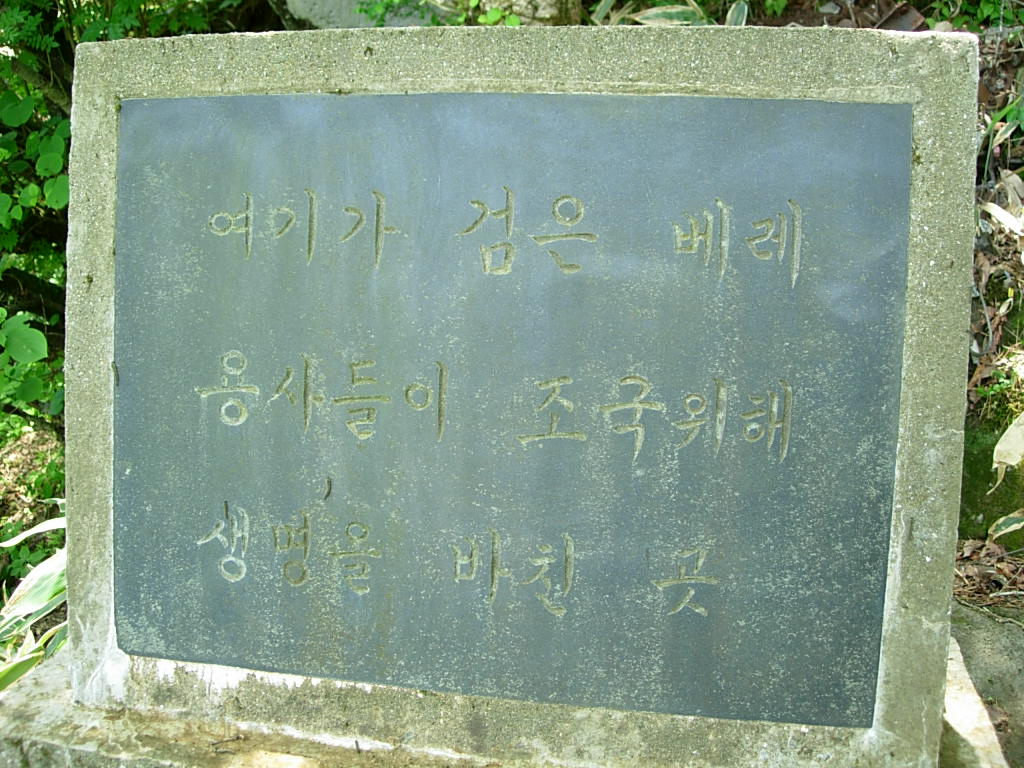 여기가 검은 베레
용사들이 조국위해
생명을 바친 곳